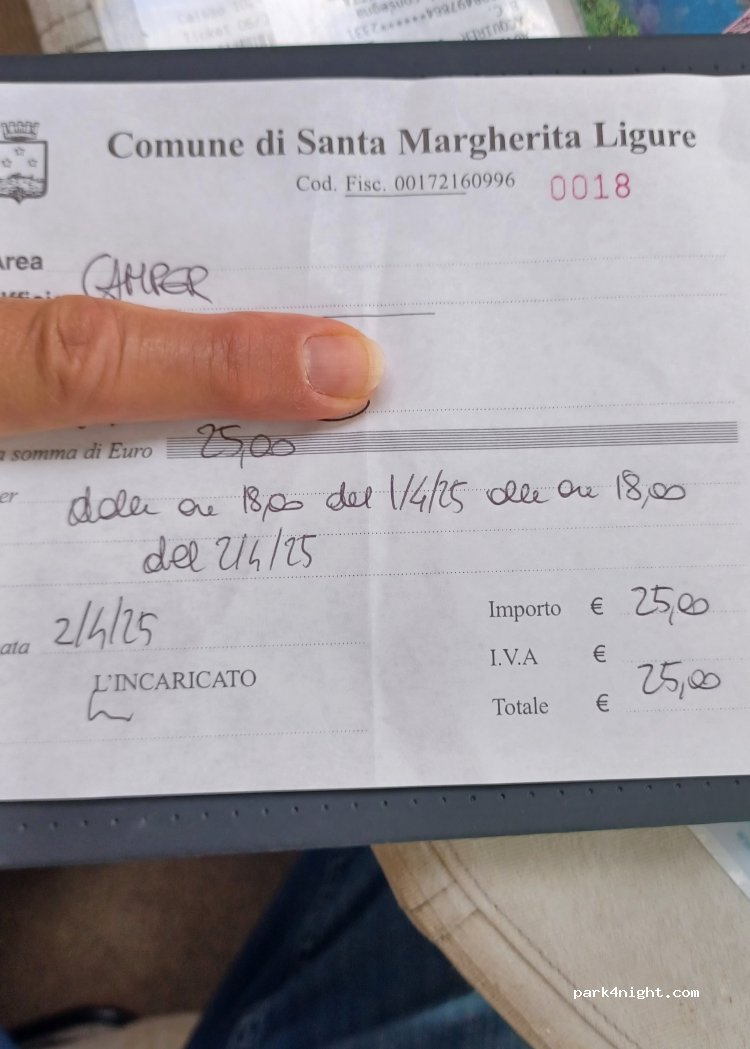 Comune di Santa Margherita Ligure
Cod. Fisc. 00172160996 0018
Area CAMPER
somma di Euro 25,00
dalle ore 18,00 del 1/4/25 alle ore 18,00
del 2/4/25
2/4/25
L'INCARICATO
Importo € 25,00
I.V.A €
Totale € 25,00
park4night.com